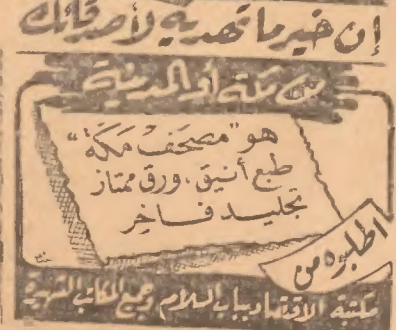 إن خير ما تهديه لأصدقائك
من مكة أو المدينة
هو "مصحف مكة"
طبع أنيق، ورق ممتاز
تجليد فاخر
اطلبوه من
مكتبة الاقتصاد بباب السلام وجميع المكاتب الشهيرة